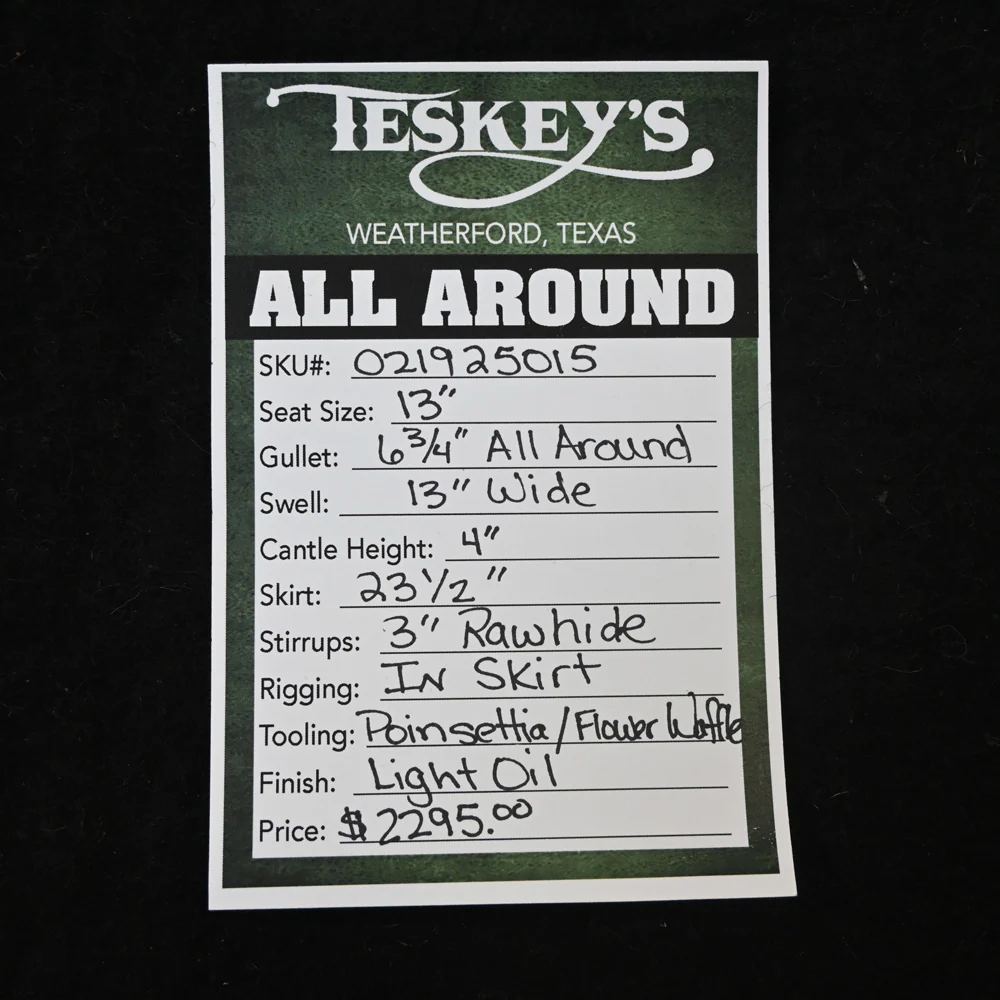 TESKEY'S
WEATHERFORD, TEXAS
ALL AROUND
SKU#: 021925015
Seat Size: 13"
Gullet: 6 3/4" All Around
Swell: 13" Wide
Cantle Height: 4"
Skirt: 23 1/2"
Stirrups: 3" Rawhide
Rigging: In Skirt
Tooling: Poinsettia/Flower Waffle
Finish: Light Oil
Price: $2295.00